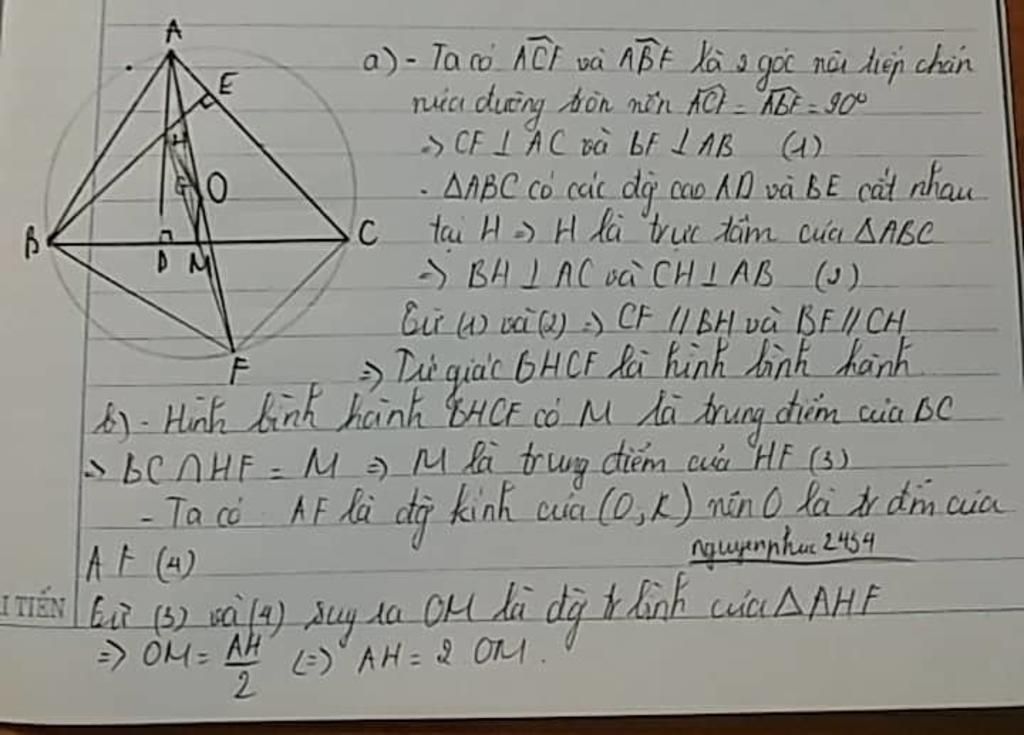 A
E
H
G
O
B
C
D
M
F
a) - Ta có ACF và ABF là 2 góc nội tiếp chắn
nửa đường tròn nên ACF = ABF = 90°
=> CF ⊥ AC và BF ⊥ AB (1)
- ΔABC có các đg cao AD và BE cắt nhau
tại H => H là trực tâm của ΔABC
=> BH ⊥ AC và CH ⊥ AB (2)
Từ (1) và (2) => CF // BH và BF // CH
=> Tứ giác BHCF là hình bình hành
b) - Hình bình hành BHCF có M là trung điểm của BC
=> BC ∩ HF = M => M là trung điểm của HF (3)
- Ta có AF là đg kính của (O,R) nên O là tr điểm của
AF (4)
nguyenphuc2454
I TIẾN
Từ (3) và (4) suy ra OM là đg tr bình của ΔAHF
=> OM = AH/2 (=) AH = 2 OM.